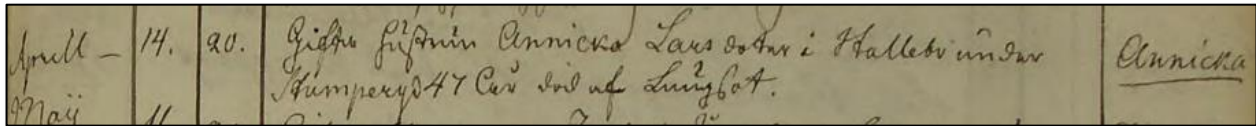 Aprill – 14. 20. Gifta hustrun Annicka Lars doter i Hallebr under Annicka
Stumperyd 47 åhr död af Lungsot.
Maij 11.